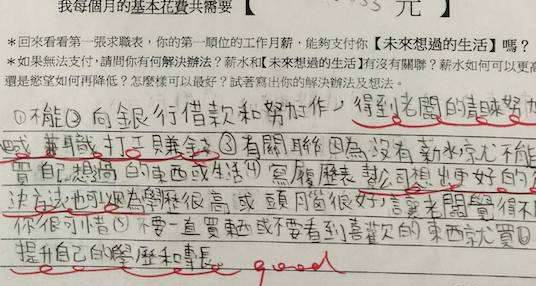 我每個月的基本花費共需要【 元】
*回來看看第一張求職表，你的第一順位的工作月薪，能夠支付你【未來想過的生活】嗎？
*如果無法支付，請問你有何解決辦法？薪水和【未來想過的生活】有沒有關聯？薪水如何可以更高
還是慾望如何再降低？怎麼樣可以最好？試著寫出你的解決辦法及想法。
①不能②向銀行借款和努力工作，得到老闆的青睞努力
兼職打工賺錢③有關聯因為沒有薪水就不能
買自己想過的東西或生活④寫履歷表 公司想出更好的
決方法也可因為學歷很高或頭腦很好，讓老闆覺得不
你很可惜⑤不要一直買東西或不要看到喜歡的東西就買⑥
提升自己的學歷和專長 good